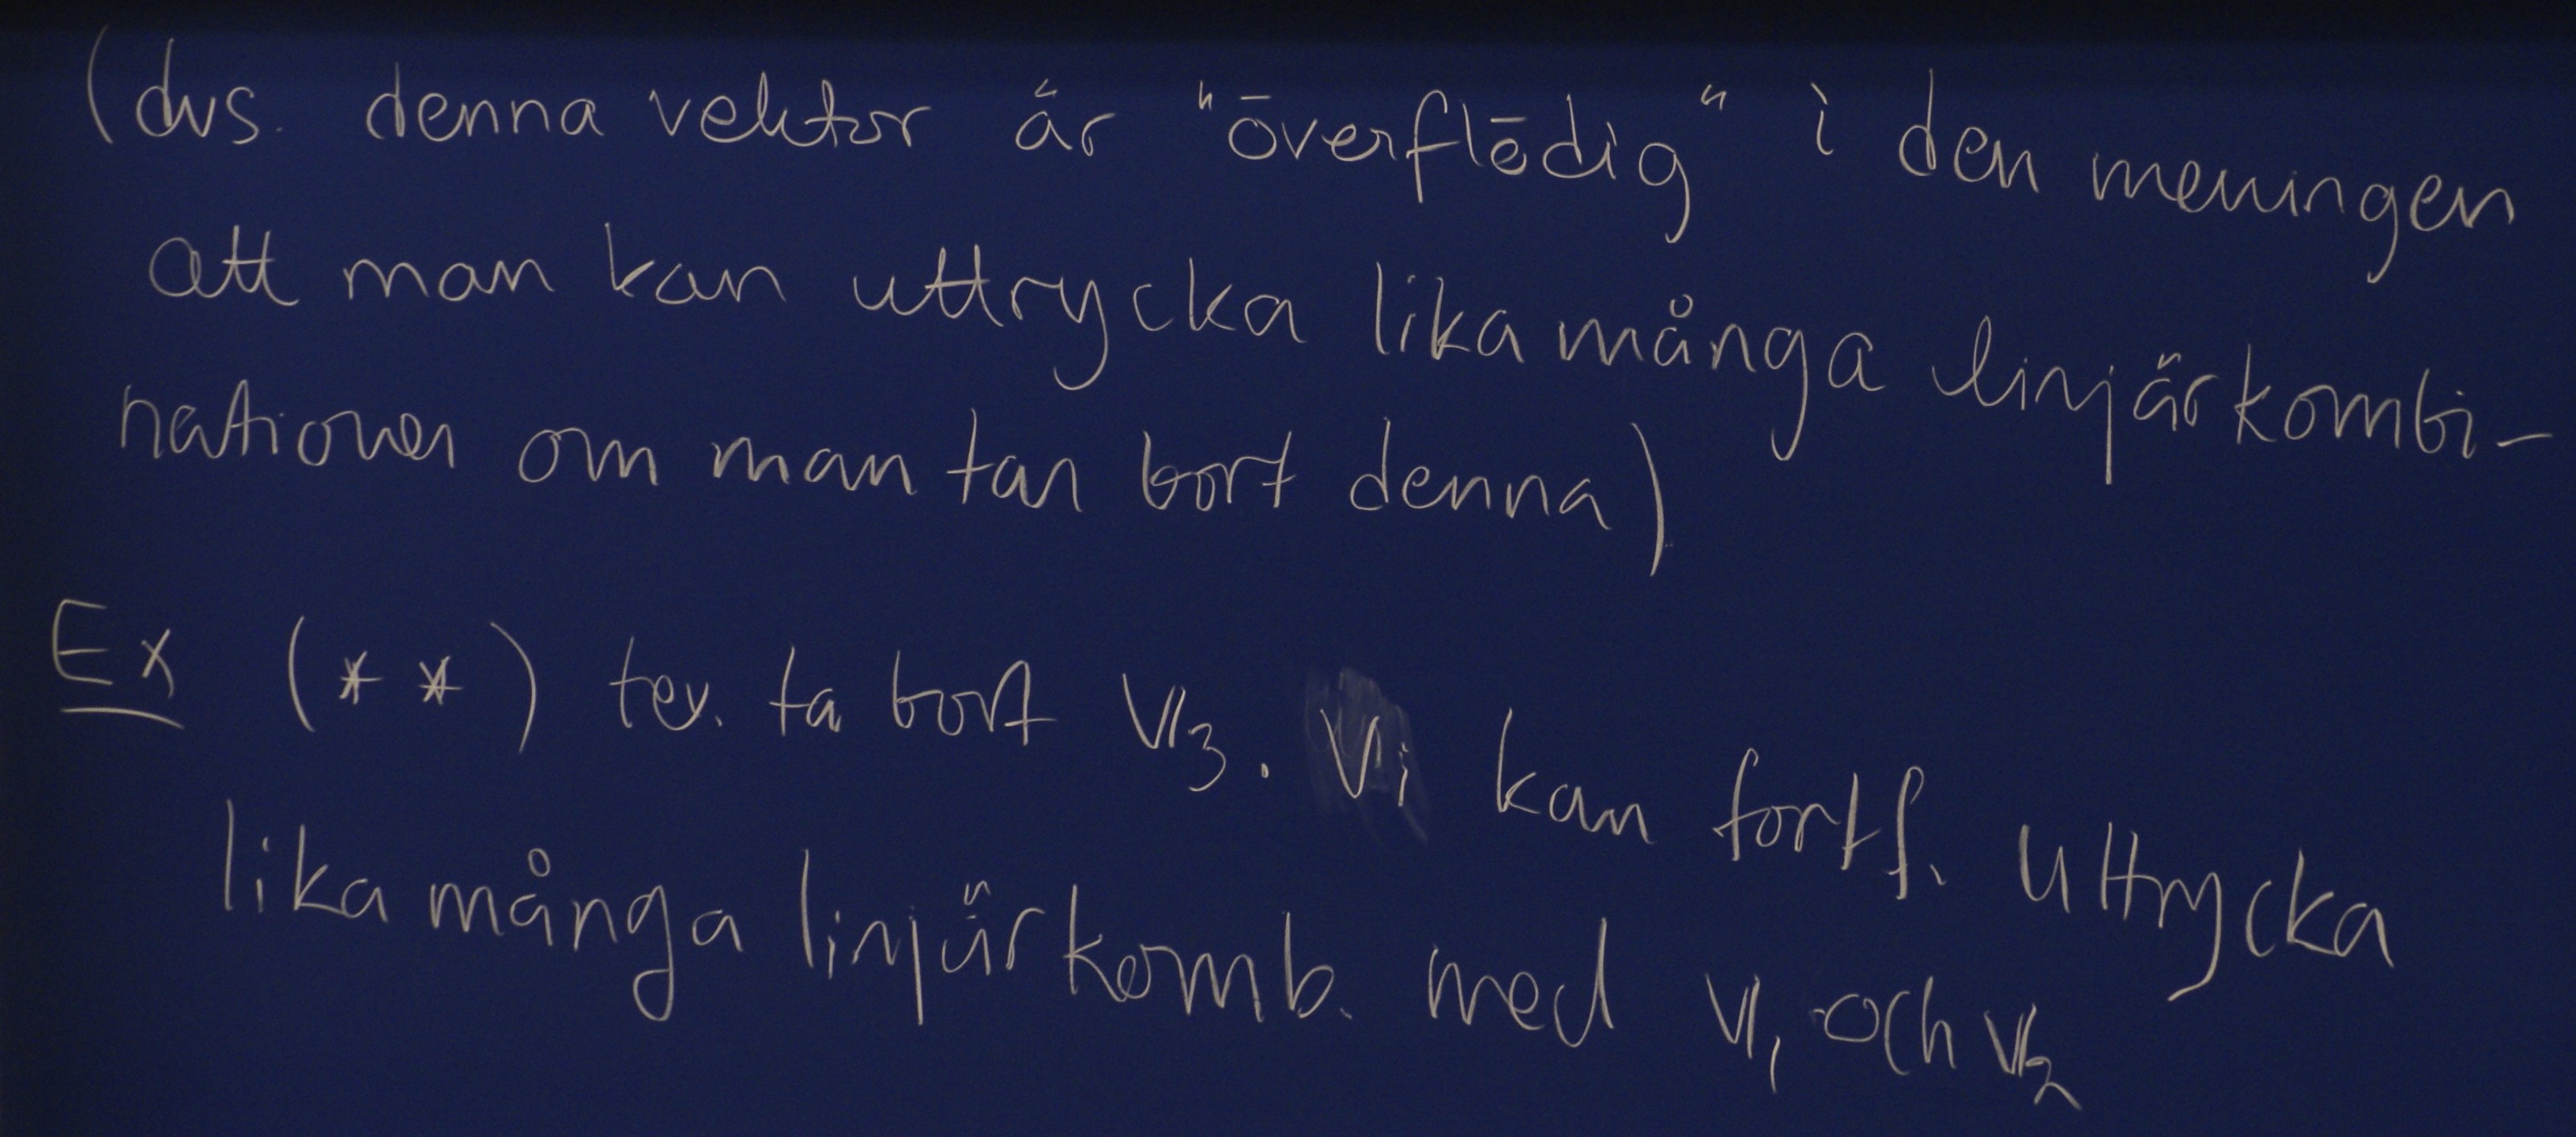 (dvs. denna vektor är "överflödig" i den meningen
att man kan uttrycka lika många linjärkombi-
nationer om man tar bort denna)
Ex (**) tex. ta bort v₃. Vi kan fortf. uttrycka
lika många linjärkomb. med v₁ och v₂